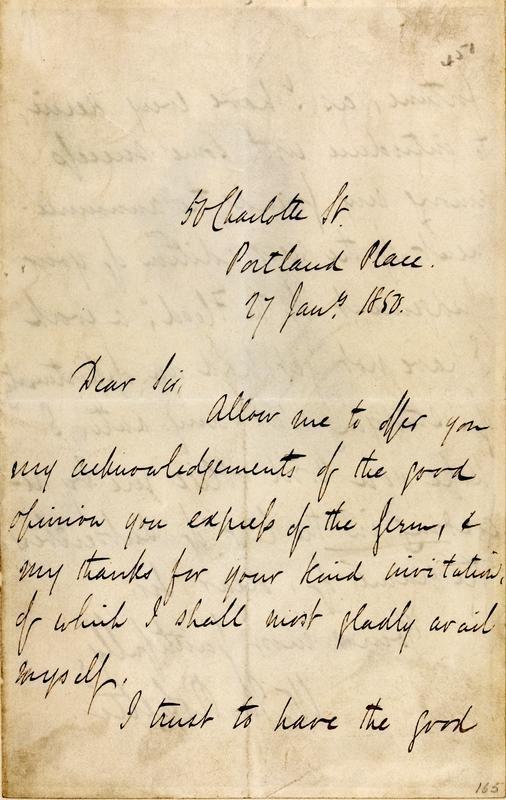 50 Charlotte St.
Portland Place.
27 Jany 1850.
Dear Sir,
Allow me to offer you
my acknowledgements of the good
opinion you express of the Germ, &
my thanks for your kind invitation,
of which I shall most gladly avail
myself.
I trust to have the good
165